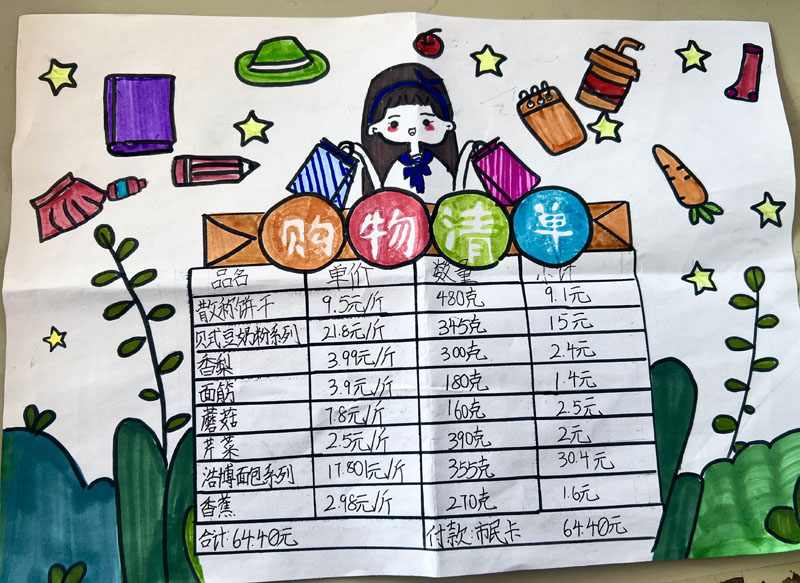 购物清单
品名 单价 数量 小计
散称饼干 9.5元/斤 480克 9.1元
贝式豆奶粉系列 21.8元/斤 345克 15元
香梨 3.99元/斤 300克 2.4元
面筋 3.9元/斤 180克 1.4元
蘑菇 7.8元/斤 160克 2.5元
芹菜 2.5元/斤 390克 2元
浩博面包系列 17.801元/斤 355克 30.4元
香蕉 2.98元/斤 270克 1.6元
合计:64.40元 付款:市民卡 64.40元